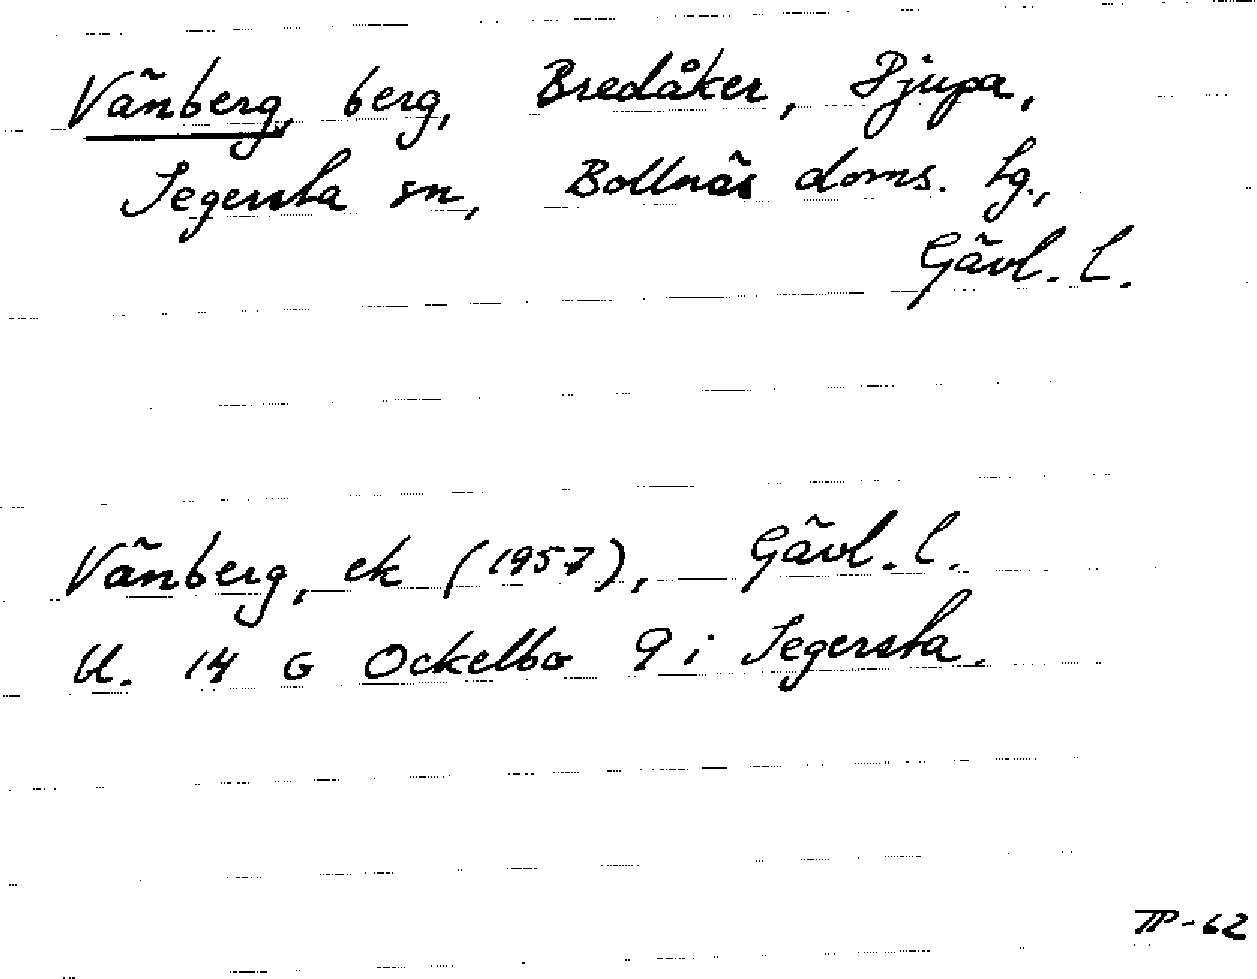 Vänberg, berg, Bredåker, Djupa,
Segersta sn, Bollnäs doms. tg.,
Gävl. l.
Vänberg, ek (1957), Gävl. l.
Bl. 14 G Ockelbo 9 i Segersta.
TP-62